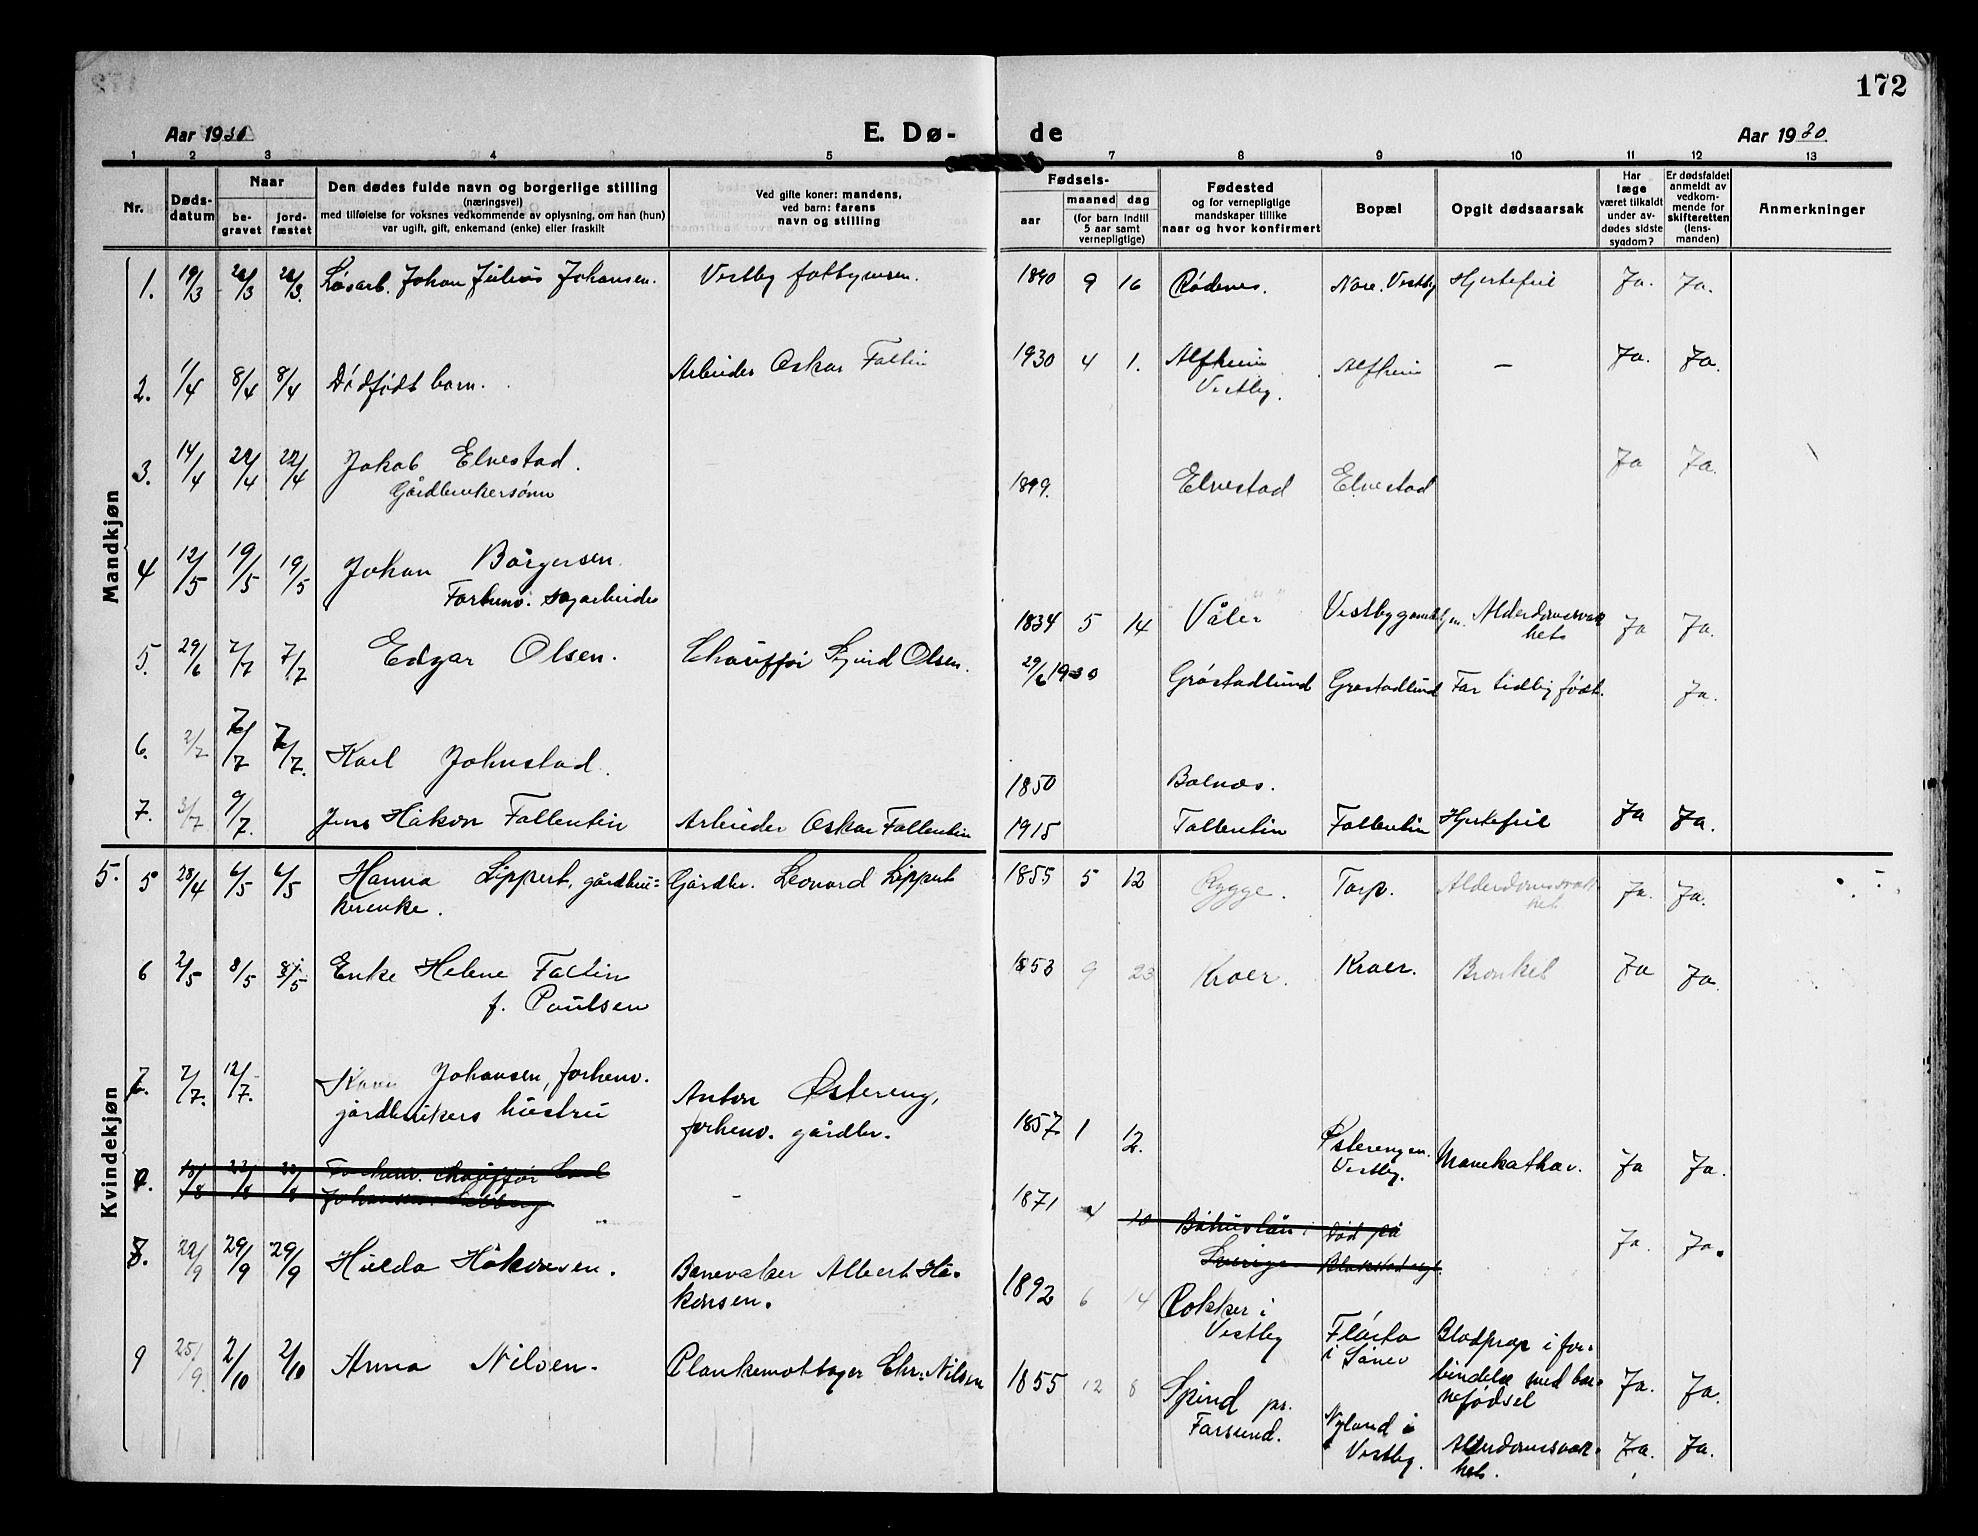 172
Aar 1930
E. Dø-
de
Aar 1930
1 2 3 4 5 6 7 8 9 10 11 12 13
Nr.
Døds-
datum
Naar
be-
gravet
jord-
fæstet
Den dødes fulde navn og borgerlige stilling
(næringsvei)
med tilføielse for voksnes vedkommende av oplysning, om han (hun)
var ugift, gift, enkemand (enke) eller fraskilt
Ved gifte koner: mandens,
ved barn: farens
navn og stilling
Fødsels-
aar
maaned dag
(for barn indtil
5 aar samt
vernepligtige)
Fødested
og for vernepligtige
mandskaper tillike
naar og hvor konfirmert
Bopæl
Opgit dødsaarsak
Har
læge
været tilkaldt
under av-
dødes sidste
sygdom?
Er dødsfaldet
anmeldt av
vedkom-
mende for
skifteretten
(lens-
manden)
Anmerkninger
Mandkjøn
1. 19/3 Løsarb. Johan Julius Johansen. Vestby 1840 9 16 Rødenes. Vestby Hjertefeil Ja. Ja.
2. 1/4 8/4 8/4 Dødfødt barn. Arbeider Oskar Faltin 1930 4 1. Alfheim Alfheim — Ja. Ja.
Vestby.
3. 14/4 22/4 22/4 Jakob Elvestad. 1899. Elvestad Elvestad Ja Ja.
Gårdbrukersønn
4 12/5 19/5 19/5 Johan Børgersen.
Forhenv. sagarbeider 1834 5 14 Våler Alderdomssvak Ja Ja.
het
5. 29/6 7/7 7/7 Edgar Olsen. Chauffør Olsen. 29/6 1930 Grøstadlund Grøstadlund For tidlig født. Ja.
6. 2/7 Karl Johnstad. 1850
7. 3/7 9/7. Jens Håkon Fallentin Arbeider Oskar Fallentin 1915 Fallentin Fallentin Hjertefeil Ja Ja.
Kvindekjøn
5. 5 28/4 6/5 6/5 Hanna Lippert, gårdbru= Gårdbr. Leonard Lippert 1855 5 12 Rygge. Torp. Alderdomssvak Ja. Ja.
kerenke. het
6 2/5 8/5 8/5 Enke Helene Faltin 1853 9 23 Kroer Kroer. Bronkit Ja Ja.
f. Paulsen
7. 7/7. 12/7. Johansen, forhenv. Anton Østereng,
gårdbrukers hustru forhenv. gårdbr. 1857 1 12. Østerengen. Ja Ja.
Vestby.
18/8 22/8 22/8 Forhenv. chauffør Carl 1871 4 10 Båhuslän i død på Ja. Ja.
Johansen Sverige
8. 22/9 29/9 29/9 Hulda Håkonsen. Banevakter Albert Hå- 1892 6 14 Pokker i Flåta Blodprop i for-
konsen. Vestby i Såner bindelse med bar- Ja. Ja.
nefødsel
9 25/9. 2/10 2/10 Anna Nilsen. Plankemottager Chr. Nilsen 1855 12 8 Spind pr. Nyland i Alderdomssvak- Ja. Ja.
Farsund. Vestby. het.